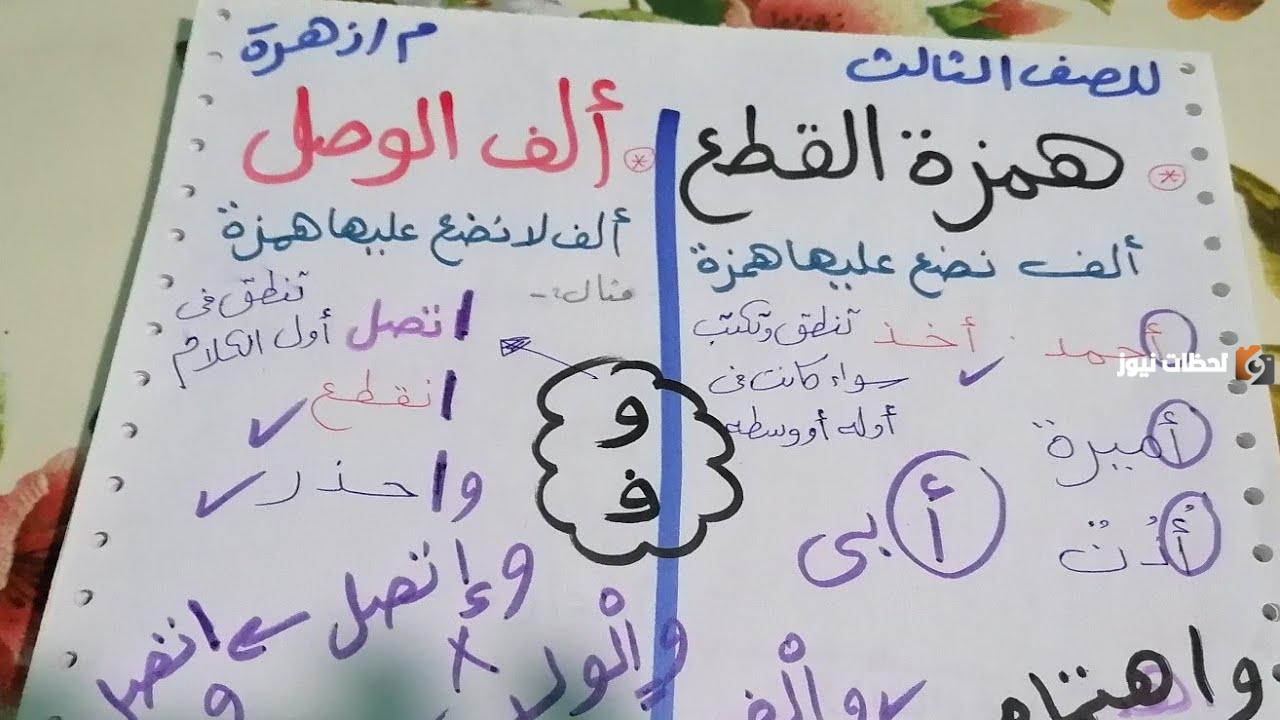 للصف الثالث
م/ زهرة
* همزة القطع
ألف نضع عليها همزة
أحمد . أخذ ✓
تنطق وتكتب
سواء كانت فى
أوله أو وسطه
أميرة
أُذن
أ بى
واهتمام
* ألف الوصل
ألف لا نضع عليها همزة
مثال:-
اتصل تنطق فى
أول الكلام
انقطع ✓
واحذر ✓
وإتصل
و
ف
لحظات نيوز